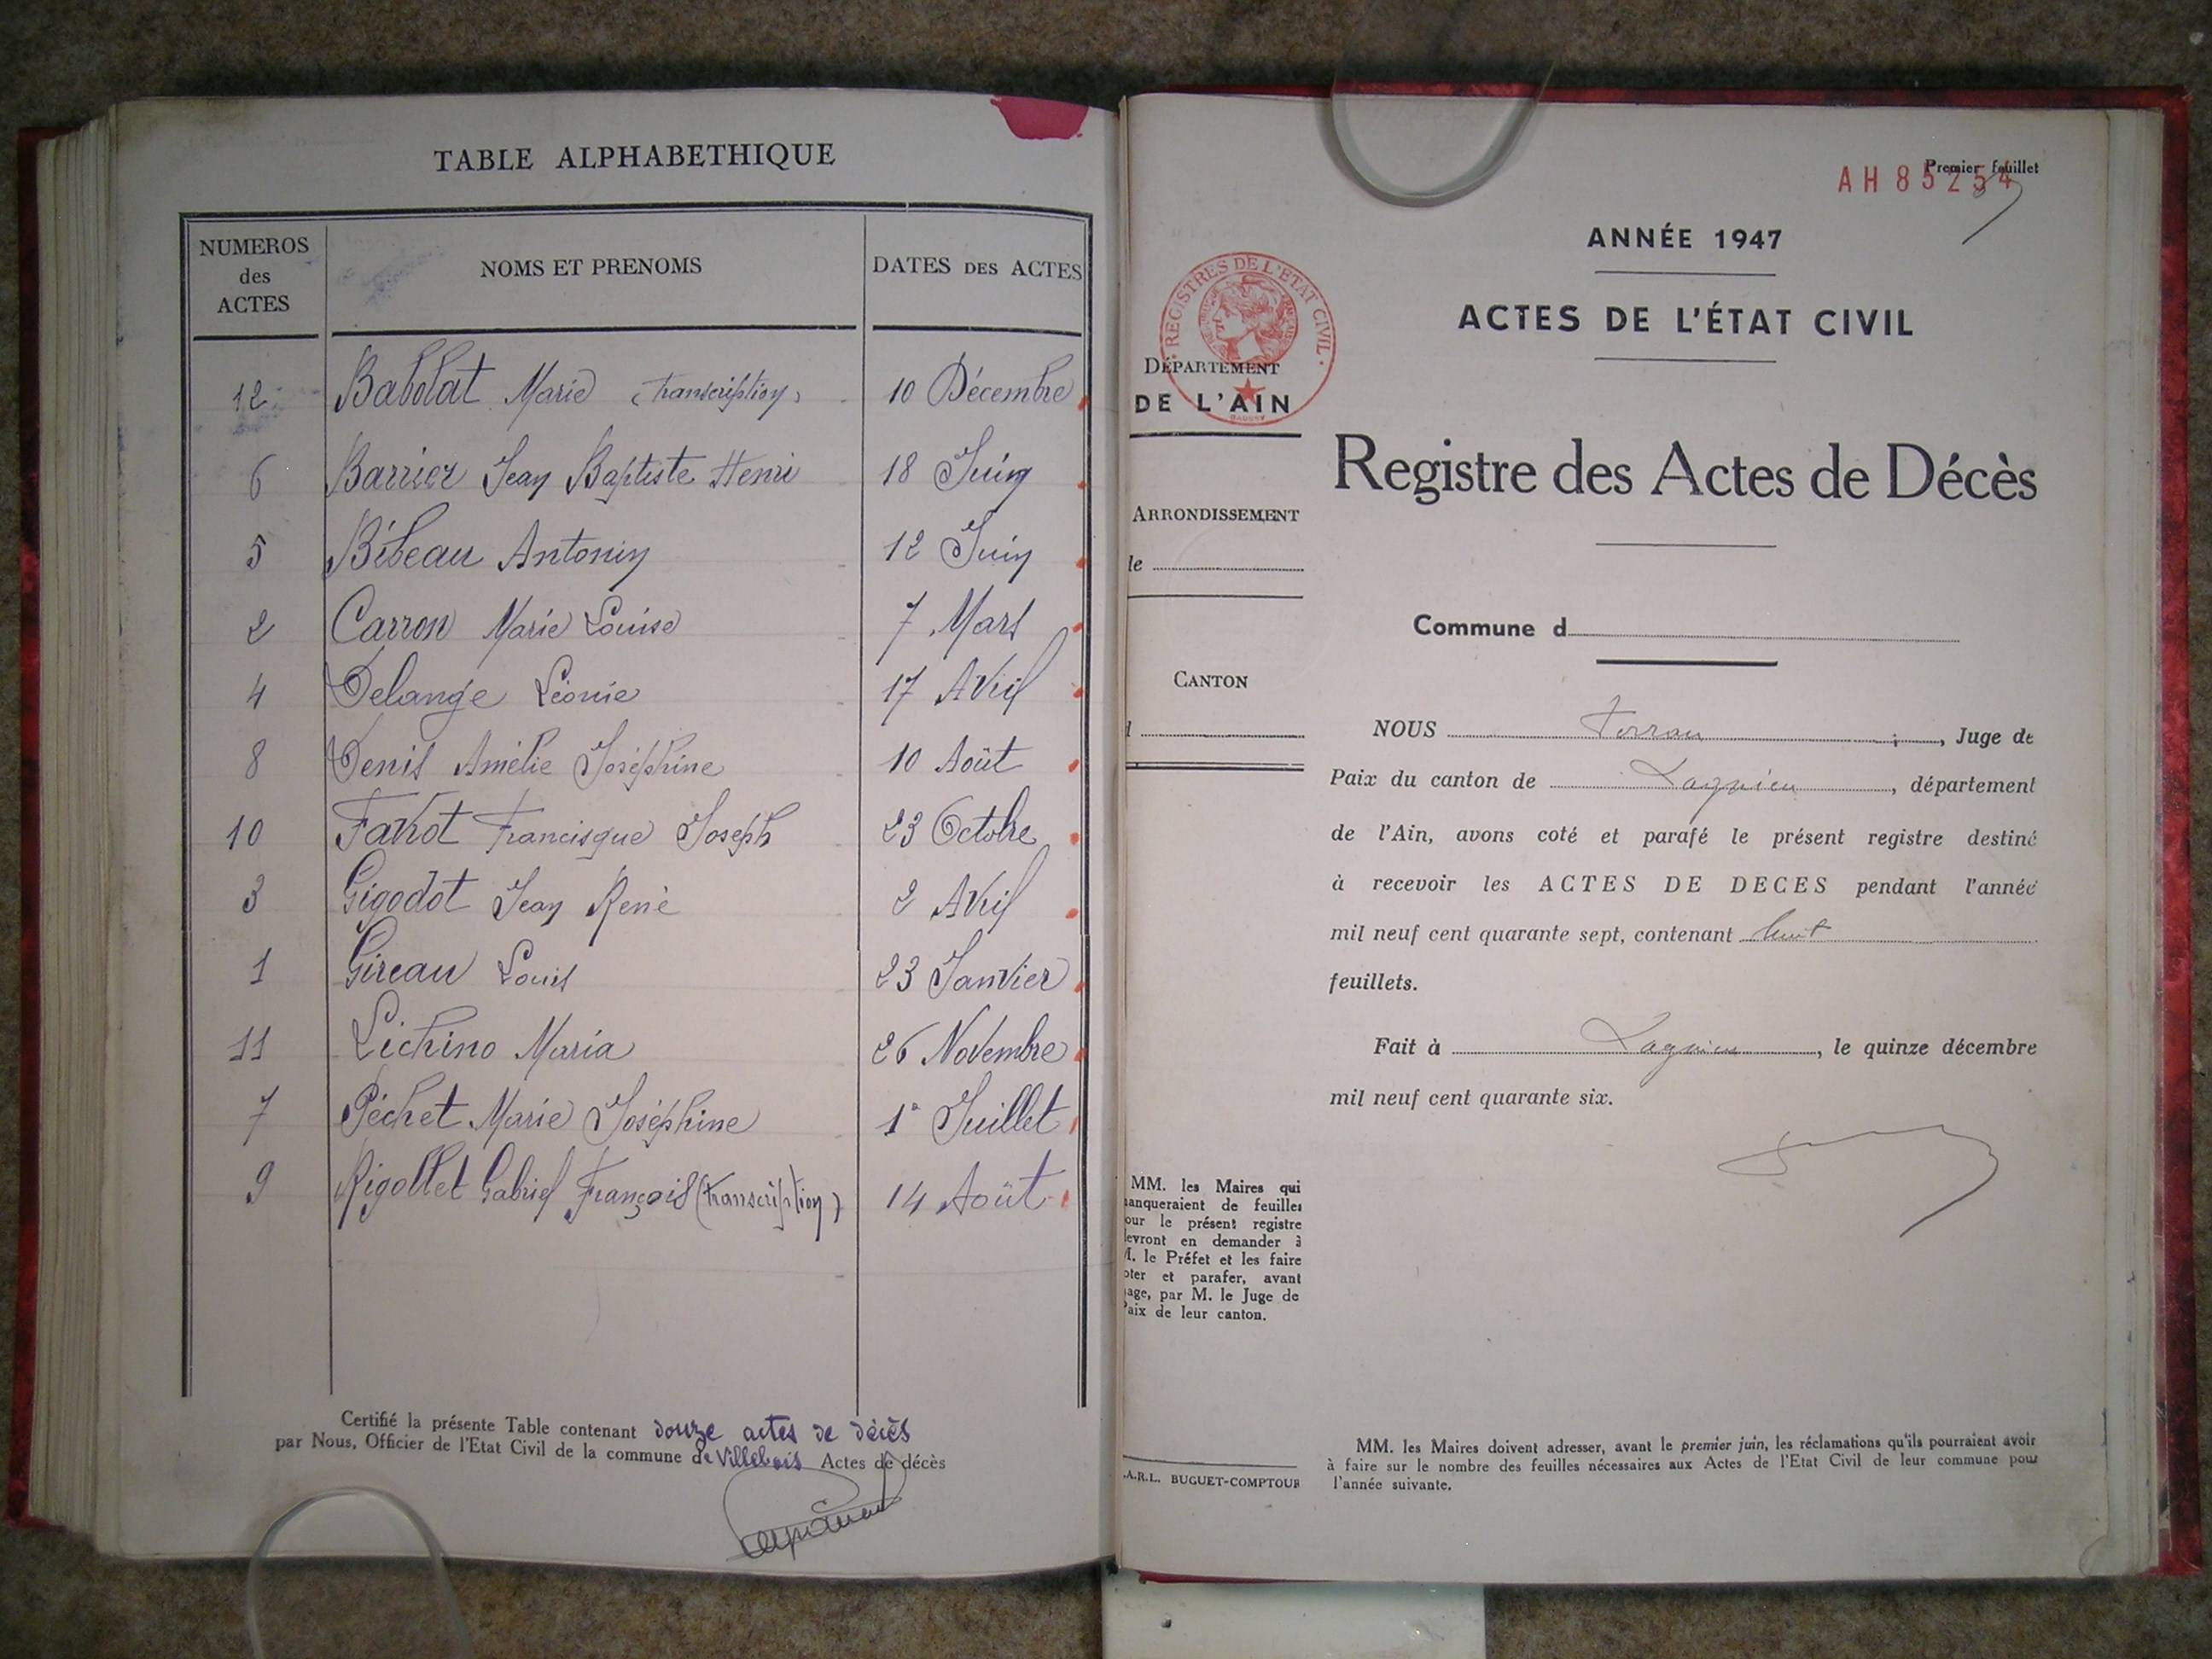 TABLE ALPHABETHIQUE
NUMEROS
des
ACTES
NOMS ET PRENOMS
DATES DES ACTES
12 Babolat Marie (transcription) 10 Décembre
6 Barrier Jean Baptiste Henri 18 Juin
5 Bibeau Antonin 12 Juin
2 Carron Marie Louise 7 Mars
4 Delange Léonie 17 Avril
8 Denis Amélie Joséphine 10 Août
10 Favrot Francisque Joseph 23 Octobre
3 Gigodot Jean René 2 Avril
1 Gireau Louis 23 Janvier
11 Lichino Maria 26 Novembre
7 Péchet Marie Joséphine 1° Juillet
9 Rigollet Gabriel François (transcription) 14 Août
Certifié la présente Table contenant douze actes de décès
par Nous, Officier de l'Etat Civil de la commune de Villebois Actes de décès
Premier feuillet
AH 85254
ANNÉE 1947
ACTES DE L'ÉTAT CIVIL
REGISTRES DE L'ETAT CIVIL
DÉPARTEMENT
DE L'AIN
ARRONDISSEMENT
de
CANTON
d
Registre des Actes de Décès
Commune d
NOUS , Juge de
Paix du canton de Lagnieu, département
de l'Ain, avons coté et parafé le présent registre destiné
à recevoir les ACTES DE DECES pendant l'année
mil neuf cent quarante sept, contenant huit
feuillets.
Fait à Lagnieu, le quinze décembre
mil neuf cent quarante six.
MM. les Maires qui
manqueraient de feuilles
pour le présent registre
devront en demander à
M. le Préfet et les faire
coter et parafer, avant
usage, par M. le Juge de
Paix de leur canton.
.A.R.L. BUGUET-COMPTOUR
MM. les Maires doivent adresser, avant le premier juin, les réclamations qu'ils pourraient avoir
à faire sur le nombre des feuilles nécessaires aux Actes de l'Etat Civil de leur commune pour
l'année suivante.